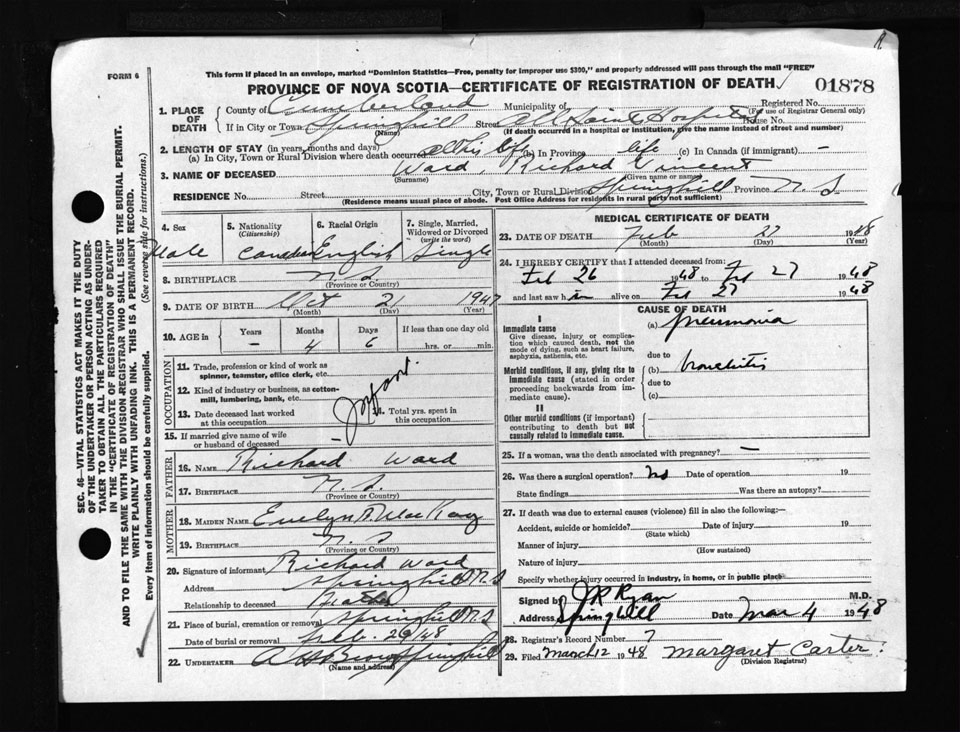 FORM 6
This form if placed in an envelope, marked "Dominion Statistics—Free, penalty for improper use $300," and properly addressed will pass through the mail "FREE"
PROVINCE OF NOVA SCOTIA—CERTIFICATE OF REGISTRATION OF DEATH
01878
1. PLACE OF DEATH
County of Cumberland Municipality of Registered No.
(For use of Registrar General only)
If in City or Town Springhill Street All Saints Hospital House No.
(Name) (If death occurred in a hospital or institution, give the name instead of street and number)
2. LENGTH OF STAY (in years, months and days)
(a) In City, Town or Rural Division where death occurred all his life (b) In Province life (c) In Canada (if immigrant) —
3. NAME OF DECEASED Ward, Richard Vincent
(Surname) (Given name or names)
RESIDENCE No. Street City, Town or Rural Division Springhill Province N.S.
(Residence means usual place of abode. Post Office Address for residents in rural parts not sufficient)
4. Sex Male
5. Nationality (Citizenship) Canadian
6. Racial Origin English
7. Single, Married, Widowed or Divorced (write the word) Single
8. BIRTHPLACE N.S.
(Province or Country)
9. DATE OF BIRTH Oct 21 1947
(Month) (Day) (Year)
10. AGE in Years Months Days If less than one day old
— 4 6 hrs. or min.
OCCUPATION
11. Trade, profession or kind of work as spinner, teamster, office clerk, etc.
12. Kind of industry or business, as cotton-mill, lumbering, bank, etc.
Infant
13. Date deceased last worked at this occupation
14. Total yrs. spent in this occupation
15. If married give name of wife or husband of deceased —
FATHER
16. NAME Richard Ward
17. BIRTHPLACE N.S.
(Province or Country)
MOTHER
18. MAIDEN NAME Evelyn A. MacKay
19. BIRTHPLACE N.S.
(Province or Country)
20. Signature of informant Richard Ward
Address Springhill N.S
Relationship to deceased Father
21. Place of burial, cremation or removal Springhill N.S
Date of burial or removal Feb. 29/48
22. UNDERTAKER A H Brown Springhill
(Name and address)
MEDICAL CERTIFICATE OF DEATH
23. DATE OF DEATH Feb 27 1948
(Month) (Day) (Year)
24. I HEREBY CERTIFY that I attended deceased from:
Feb 26 1948 to Feb 27 1948
and last saw him alive on Feb 27 1948
CAUSE OF DEATH
I
Immediate cause
Give disease, injury or complication which caused death, not the mode of dying, such as heart failure, asphyxia, asthenia, etc.
(a) pneumonia
due to
Morbid conditions, if any, giving rise to immediate cause (stated in order proceeding backwards from immediate cause).
(b) bronchitis
due to
(c)
II
Other morbid conditions (if important) contributing to death but not causally related to immediate cause.
25. If a woman, was the death associated with pregnancy? —
26. Was there a surgical operation? No Date of operation 19
State findings Was there an autopsy?
27. If death was due to external causes (violence) fill in also the following:—
Accident, suicide or homicide? Date of injury 19
(State which)
Manner of injury
(How sustained)
Nature of injury
Specify whether injury occurred in industry, in home, or in public place
Signed by J R Ryan M.D.
Address Springhill Date Mar 4 1948
28. Registrar's Record Number 7
29. Filed March 12 1948 Margaret Carter
(Division Registrar)
SEC. 46—VITAL STATISTICS ACT MAKES IT THE DUTY OF THE UNDERTAKER OR PERSON ACTING AS UNDERTAKER TO OBTAIN ALL THE PARTICULARS REQUIRED IN THE "CERTIFICATE OF REGISTRATION OF DEATH" AND TO FILE THE SAME WITH THE DIVISION REGISTRAR WHO SHALL ISSUE THE BURIAL PERMIT.
WRITE PLAINLY WITH UNFADING INK. THIS IS A PERMANENT RECORD.
Every item of information should be carefully supplied. (See reverse side for instructions.)